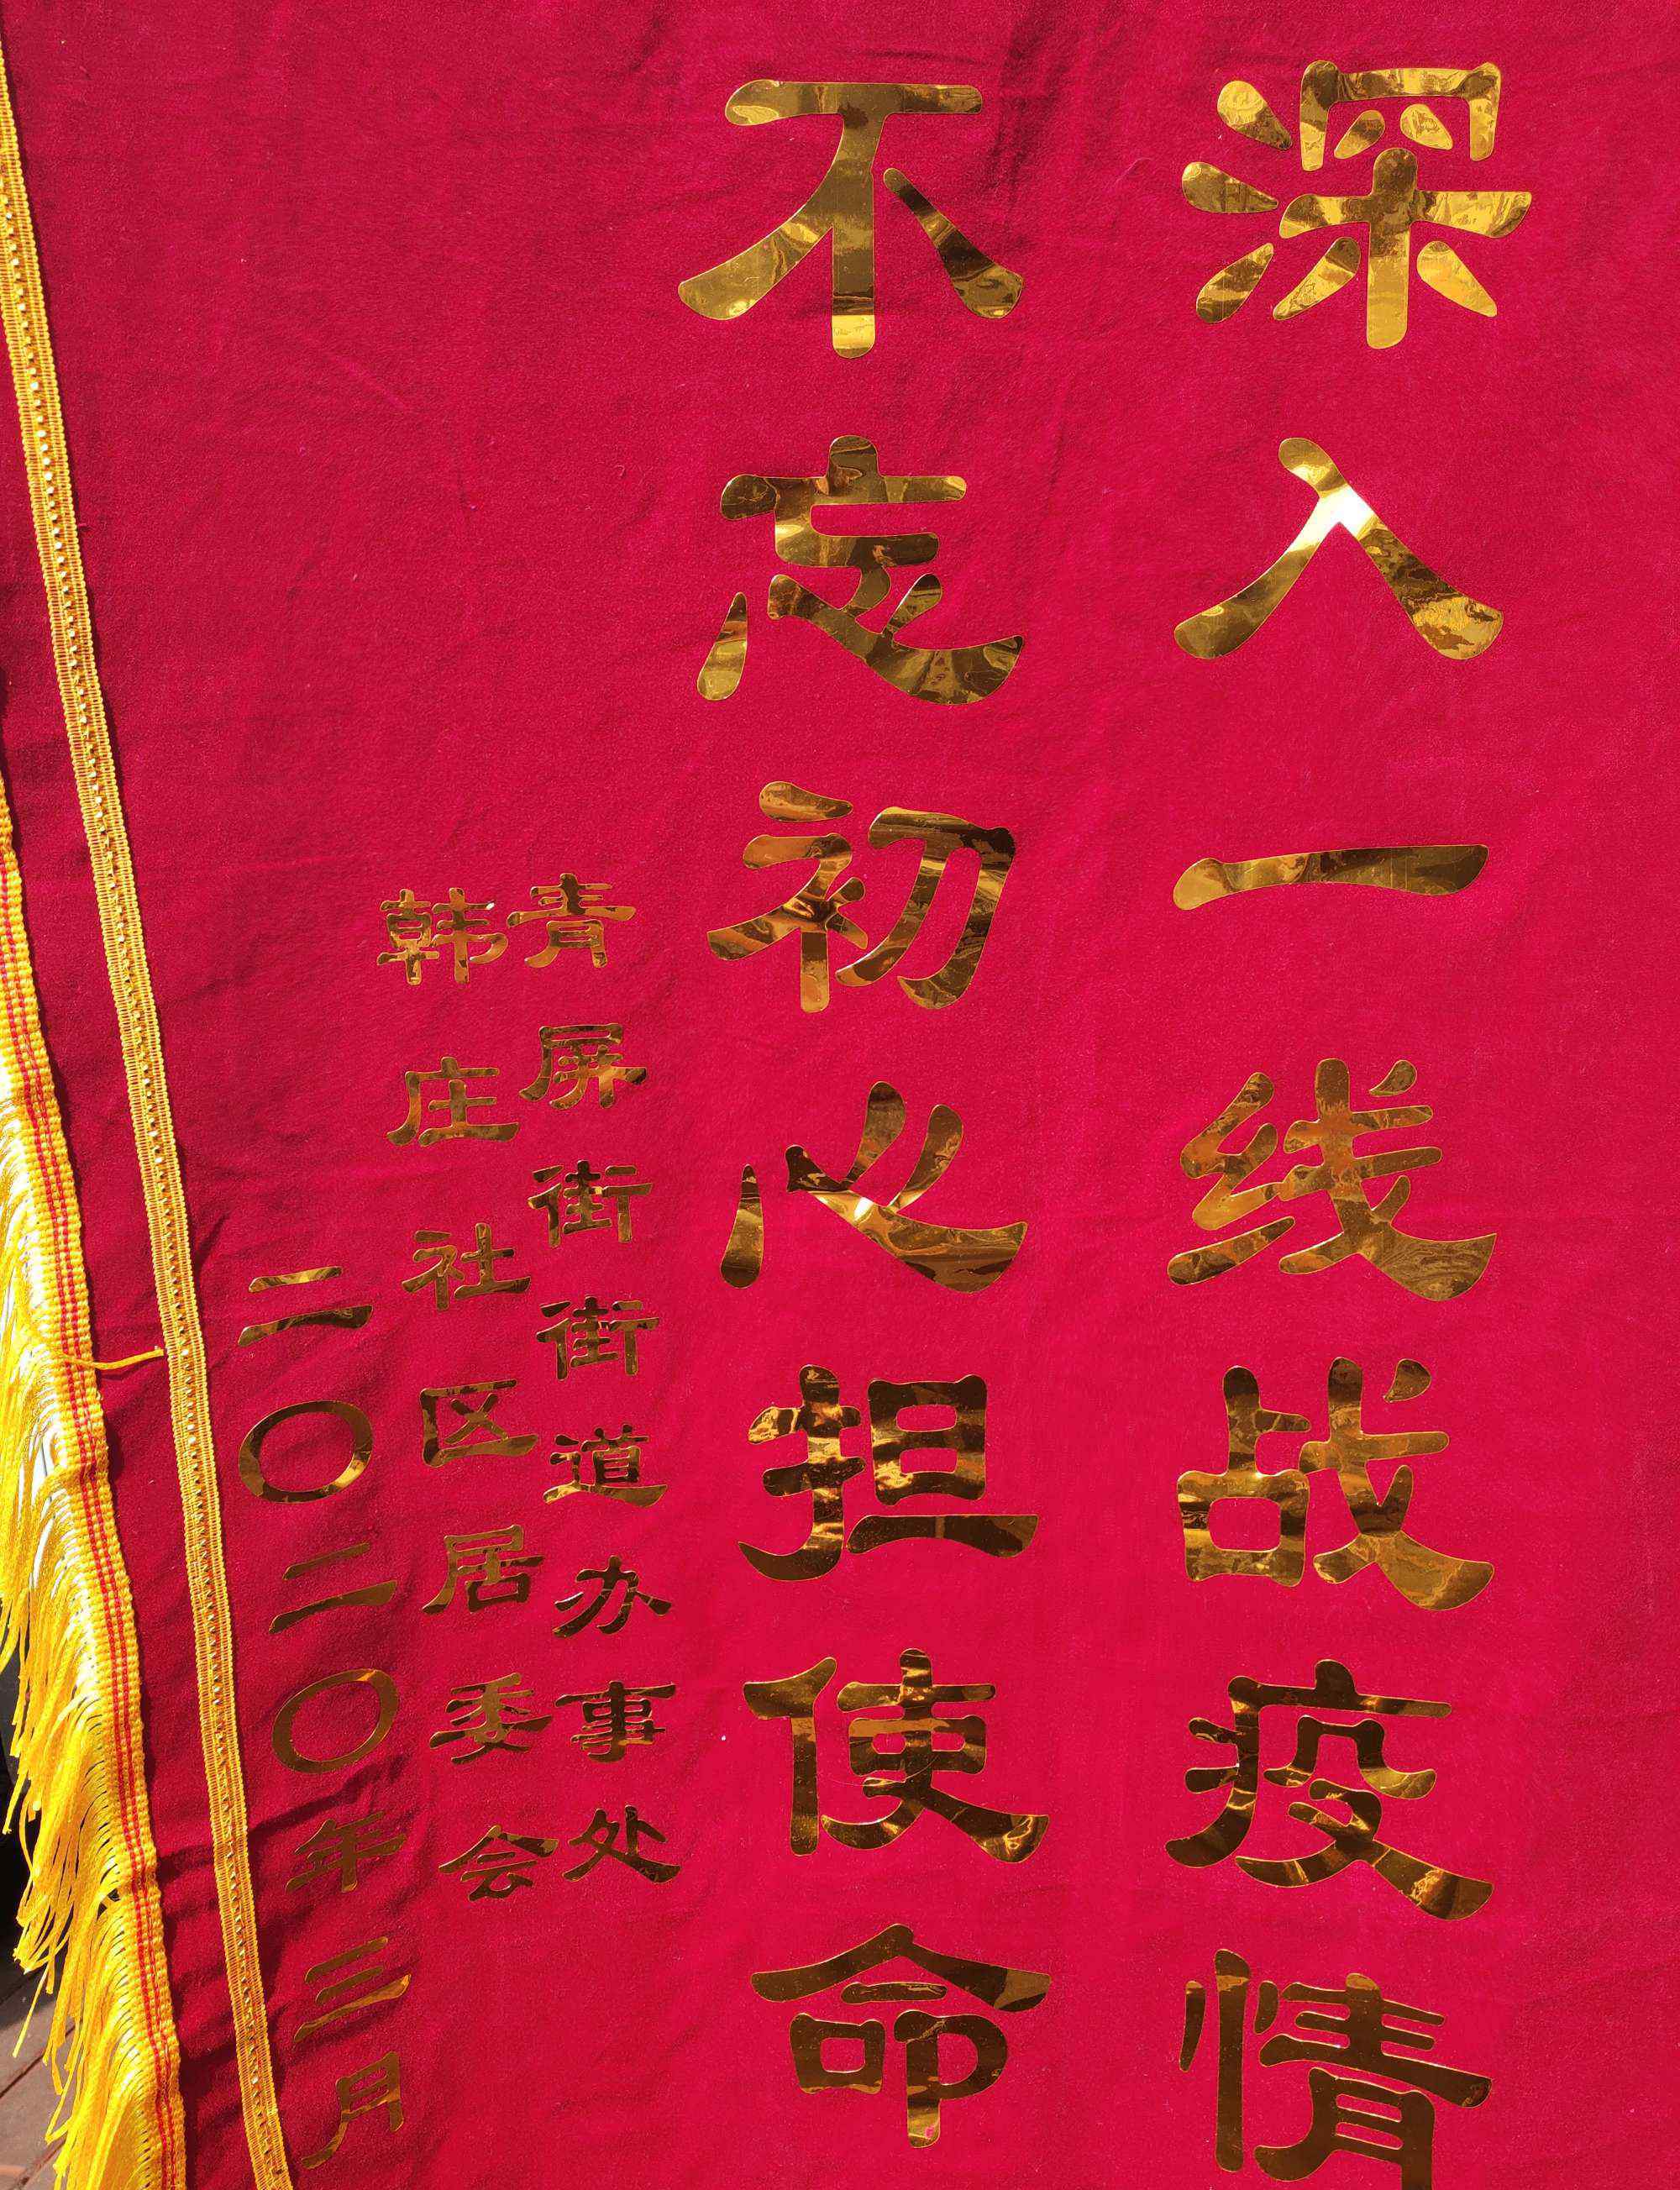 深入一线战疫情
不忘初心担使命
青屏街街道办事处
韩庄社区居委会
二〇二〇年三月